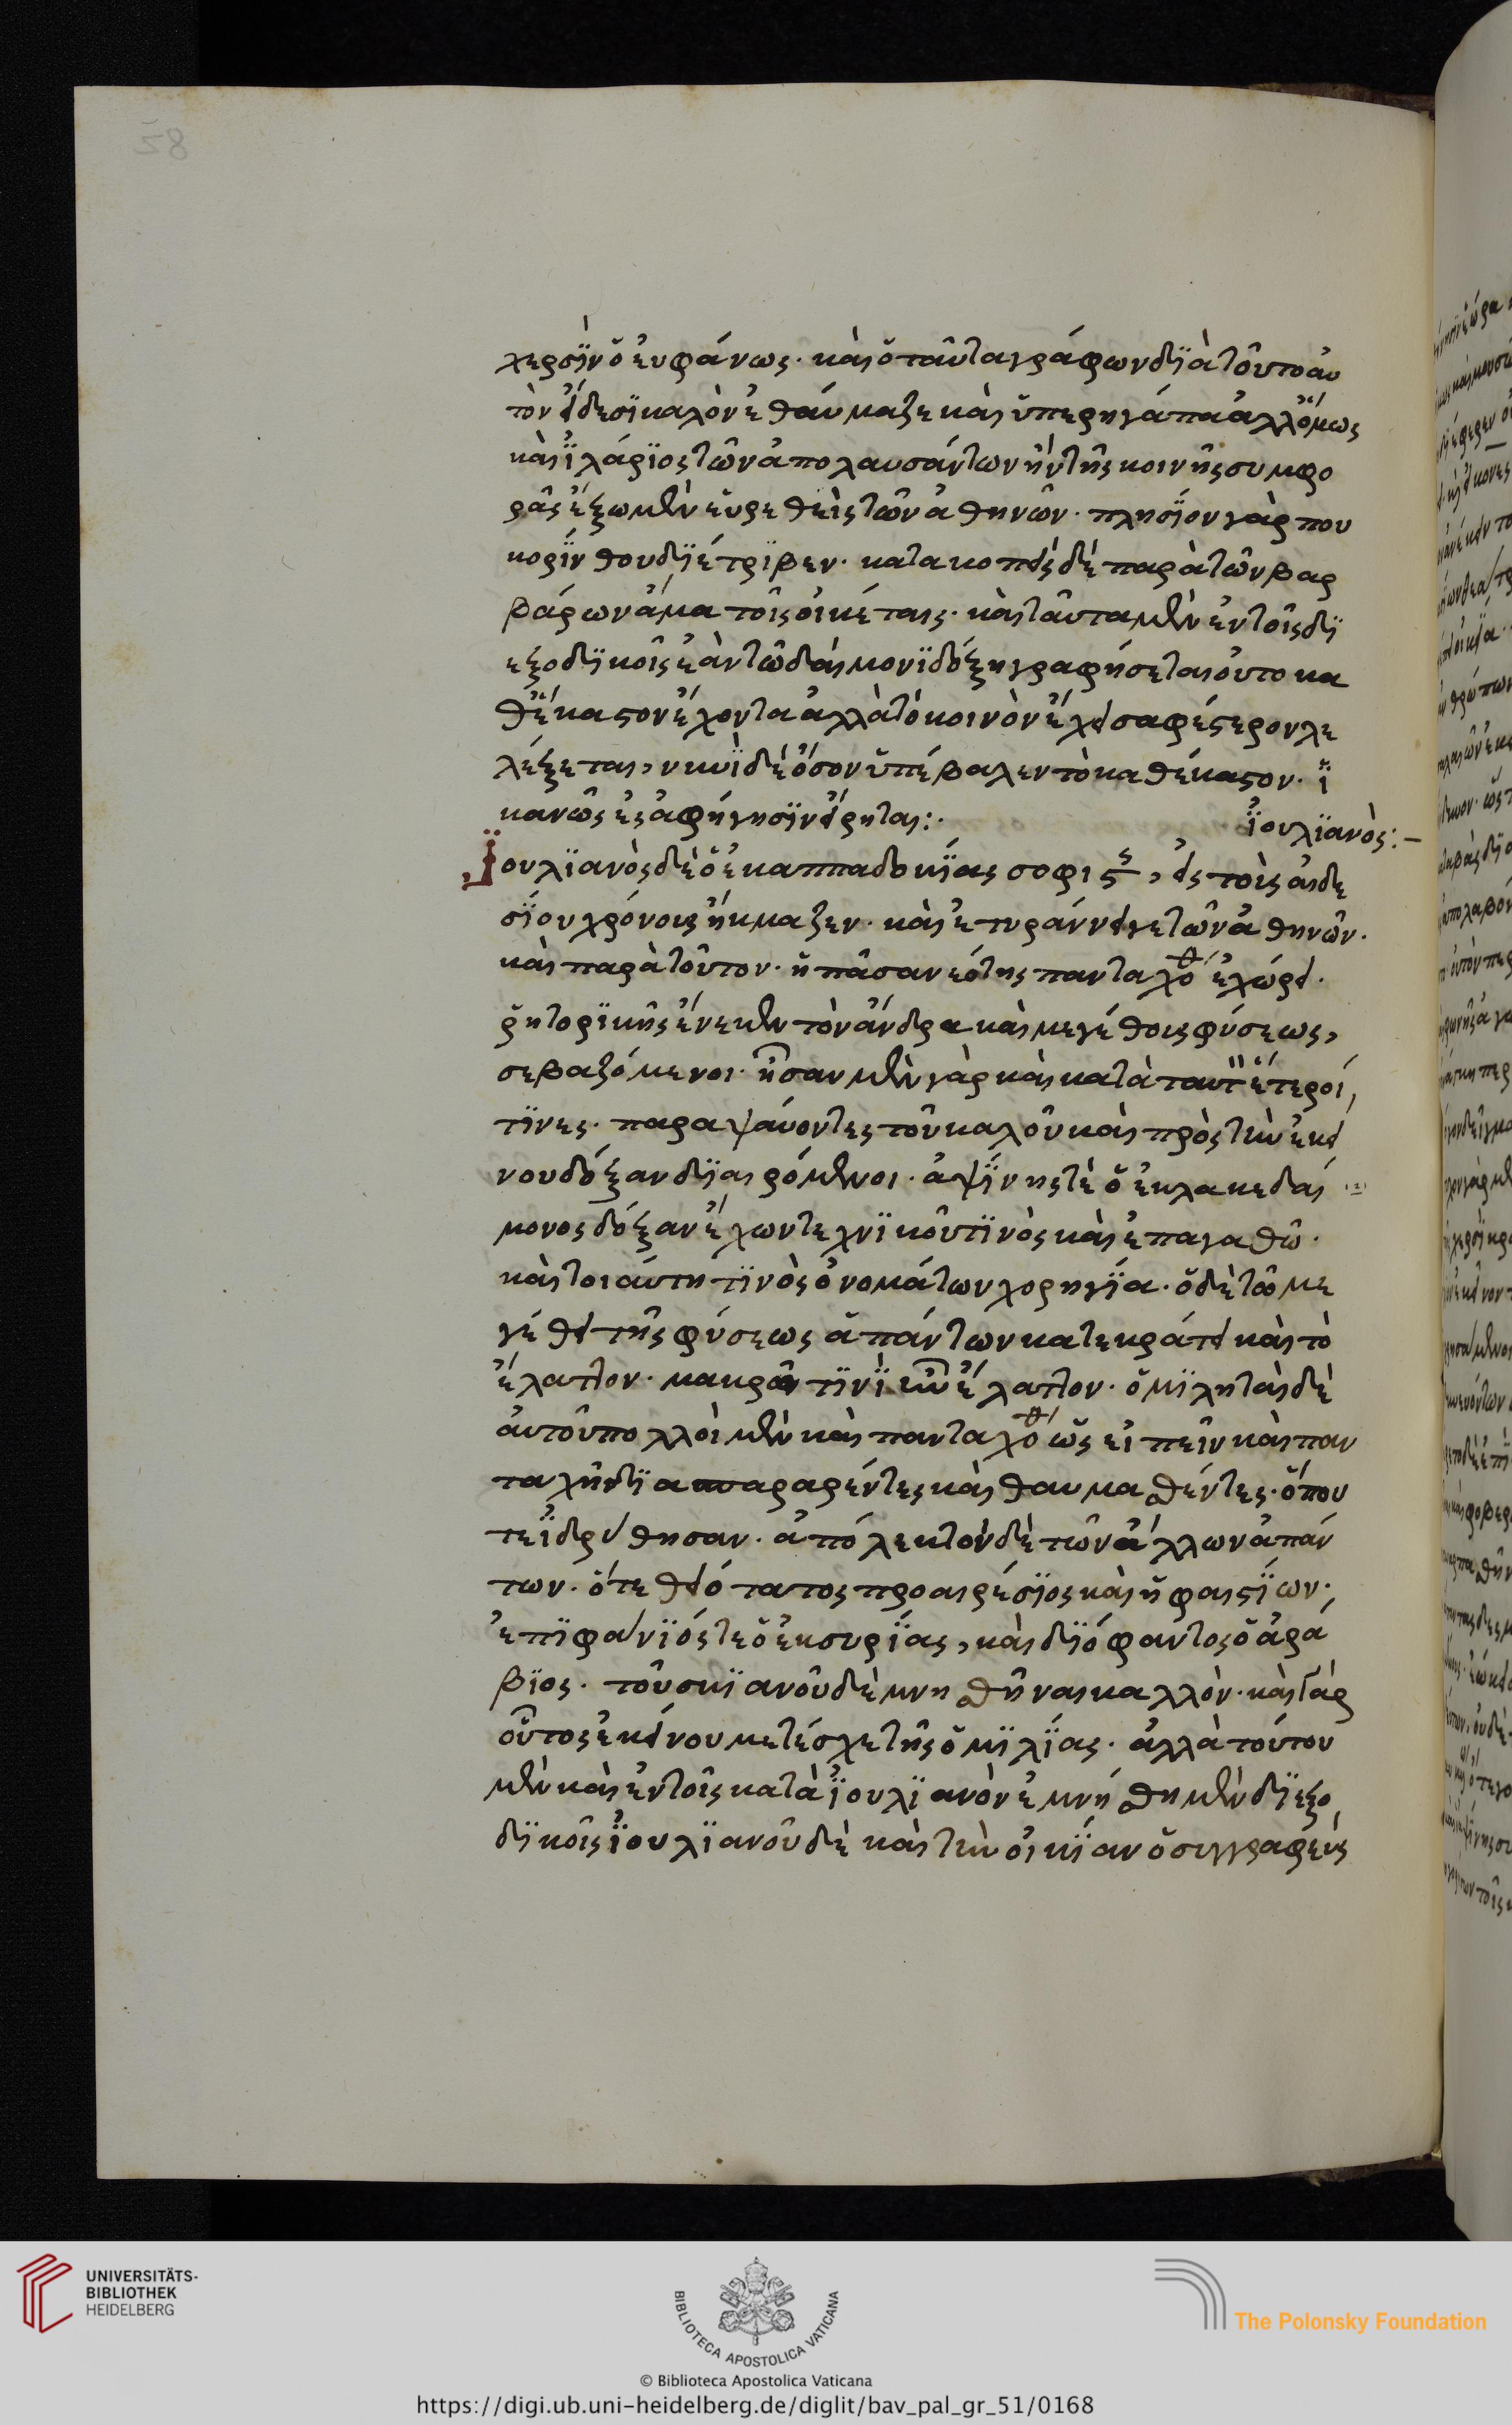 χερσὶν ὁ εὐφάνως· καὶ ὁ ταῦτα γράφων διὰ τοῦτο αὐ
τὸν εἴδεσι καλὸν ἐθαύμαζε καὶ ὑπερηγάπα ἀλλ' ὅμως
καὶ ἱλάριος τῶν ἀπολαυσάντων ἦν τῆς κοινῆς συμφο
ρᾶς ἔξω μὲν εὑρεθεὶς τῶν ἀθηνῶν· πλησίον γάρ που
κορίνθου διέτριβεν· κατακοπεὶς δὲ παρὰ τῶν βαρ
βάρων ἅμα τοῖς οἰκέταις· καὶ ταῦτα μὲν ἐν τοῖς δι
εξοδικοῖς ἐὰν τῶ δαίμονι δόξη γραφήσεται οὐ το κα
θέκαστον ἔχοντα ἀλλὰ τὸ κοινὸν ἔχει σαφέστερον λε
λέξεται, νυνὶ δὲ ὅσον ὑπέβαλεν τὸ καθέκαστον· ἱ
κανῶς ἐς ἀφήγησιν εἴρηται:·
ἰουλιανὸς:–
Ἰουλιανὸς δὲ ὁ ἐκ καππαδοκίας σοφιστ, εἰς τοὶς αἰδε
σίου χρόνοις ἤκμαζεν· καὶ ἐτυράννει γε τῶν ἀθηνῶν·
καὶ παρὰ τοῦτον· ἡ πᾶσα νεότης πανταχόθ ἐχώρει·
ῥητορικῆς ἕνεκεν τὸν ἄνδρα καὶ μεγέθοις φύσεως,
σεβαζόμενοι· ἦσαν μὲν γὰρ καὶ κατὰ ταυτ ἕτεροί
τινες· παραψαύοντες τοῦ καλοῦ καὶ πρὸς τὴν ἐκεί
νου δόξαν διαιρόμενοι· ἀψίνης τὲ ὁ ἐκ λακεδαί
μονος δόξαν ἔχων τεχνικοῦ τινὸς καὶ ἐπαγαθῶ·
καὶ τοιαύτη τινὸς ὀνομάτων χορηγία· ὁ δὲ τῶ με
γέθει τῆς φύσεως ἁπάντων κατεκράτει καὶ τὸ
ἔλαττον· μακρῶ τινὶ ἦν ἔλαττον· ὁμιληταὶ δὲ
αὐτοῦ πολλοὶ μὲν καὶ πανταχόθ ὡς εἰπεῖν καὶ παν
ταχῆ διασπαρέντες καὶ θαυμαθέντες· ὅπου
τε ἱδρύθησαν· ἀπόλεκτον δὲ τῶν ἄλλων ἁπάν
των· ὅτε θειότατος προαιρέσιος καὶ ἡφαιστίων·
ἐπιφάνιός τε ὁ ἐκ συρίας, καὶ διόφαντος ὁ ἀρά
βιος· τουσκιανοῦ δὲ μνηθῆναι καλλὸν· καὶ γὰρ
οὗτος ἐκείνου μετέσχε τῆς ὁμιλίας· ἀλλὰ τούτου
μὲν καὶ ἐν τοῖς κατὰ ἰουλιανὸν ἐμνήθημεν διεξο
δικοῖς ἰουλιανοῦ δὲ καὶ τὴν οἰκίαν ὁ συγγραφεὺς
UNIVERSITÄTS-
BIBLIOTHEK
HEIDELBERG
BIBLIOTECA APOSTOLICA VATICANA
The Polonsky Foundation
© Biblioteca Apostolica Vaticana
https://digi.ub.uni-heidelberg.de/diglit/bav_pal_gr_51/0168